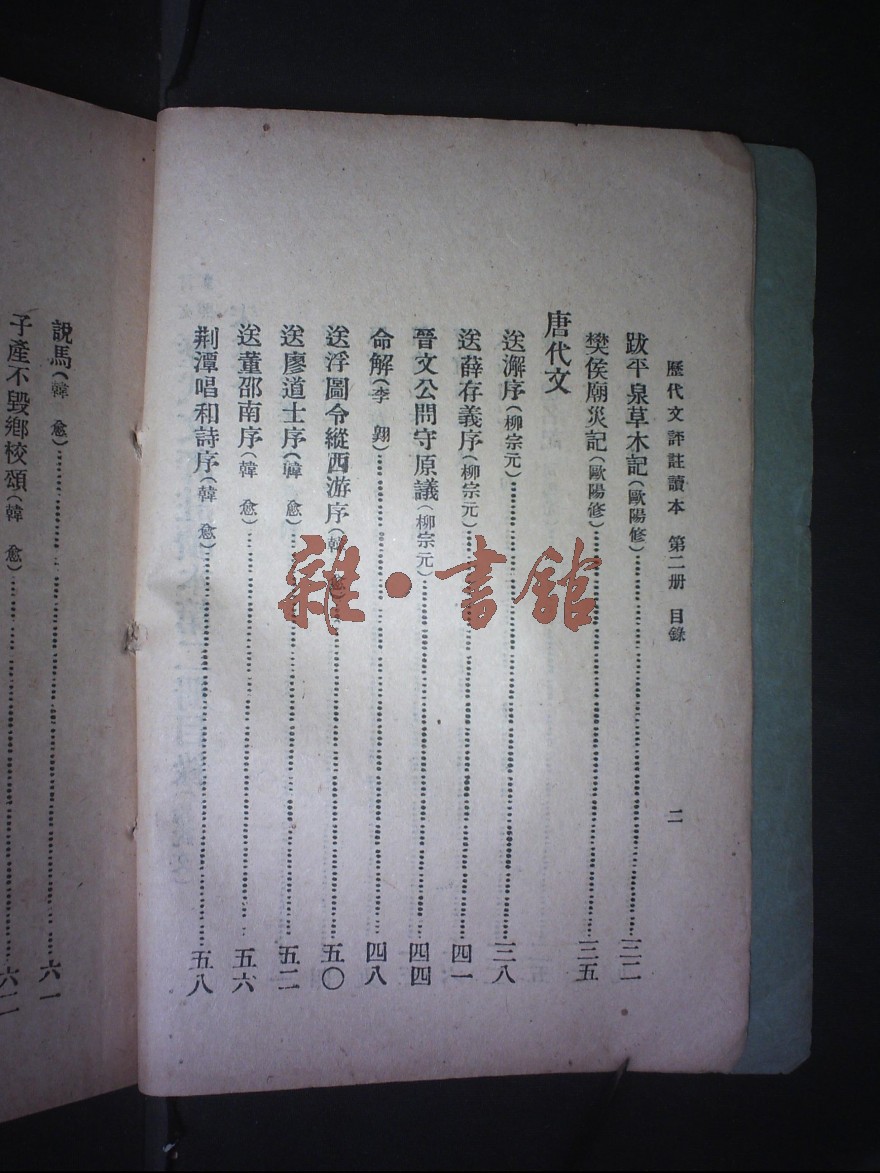 歷代文評註讀本 第二册 目錄 二
跋平泉草木記(歐陽修)……三二
樊侯廟災記(歐陽修)……三五
唐代文
送澥序(柳宗元)……三八
送薛存義序(柳宗元)……四一
晉文公問守原議(柳宗元)……四四
命解(李翱)……四八
送浮圖令縱西游序(韓愈)……五〇
送廖道士序(韓愈)……五二
送董邵南序(韓愈)……五六
荆潭唱和詩序(韓愈)……五八
說馬(韓愈)……六一
子產不毀鄉校頌(韓愈)……六二
雜·書館